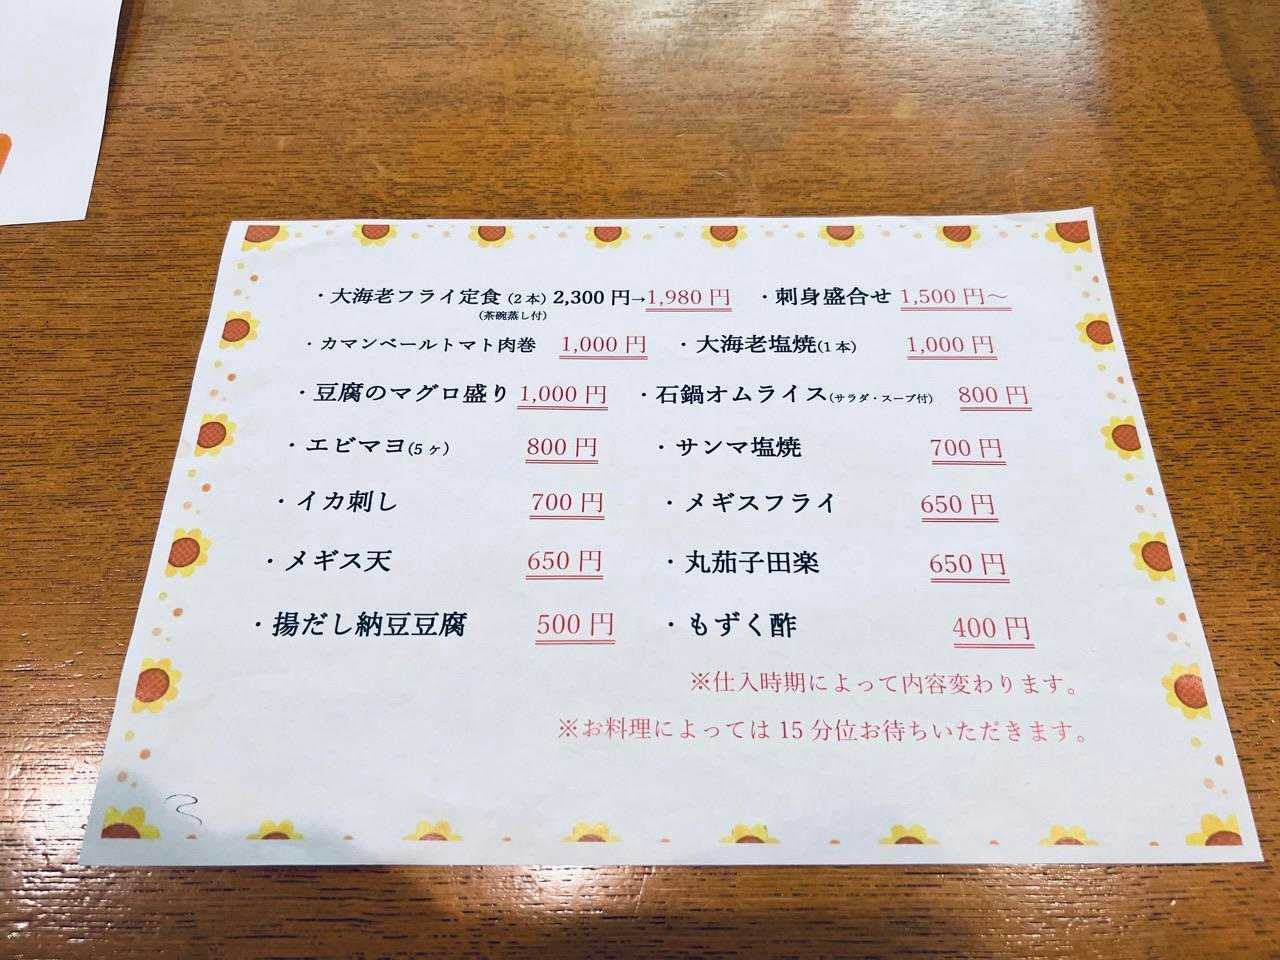 ・大海老フライ定食（2本）2,300円→1,980円 ・刺身盛合せ 1,500円～
（茶碗蒸し付）
・カマンベールトマト肉巻 1,000円 ・大海老塩焼(1本) 1,000円
・豆腐のマグロ盛り 1,000円 ・石鍋オムライス(サラダ・スープ付) 800円
・エビマヨ(5ヶ) 800円 ・サンマ塩焼 700円
・イカ刺し 700円 ・メギスフライ 650円
・メギス天 650円 ・丸茄子田楽 650円
・揚だし納豆豆腐 500円 ・もずく酢 400円
※仕入時期によって内容変わります。
※お料理によっては15分位お待ちいただきます。